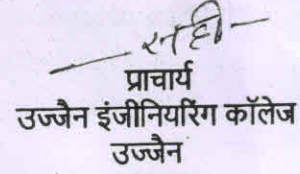 सही
प्राचार्य
उज्जैन इंजीनियरिंग कॉलेज
उज्जैन